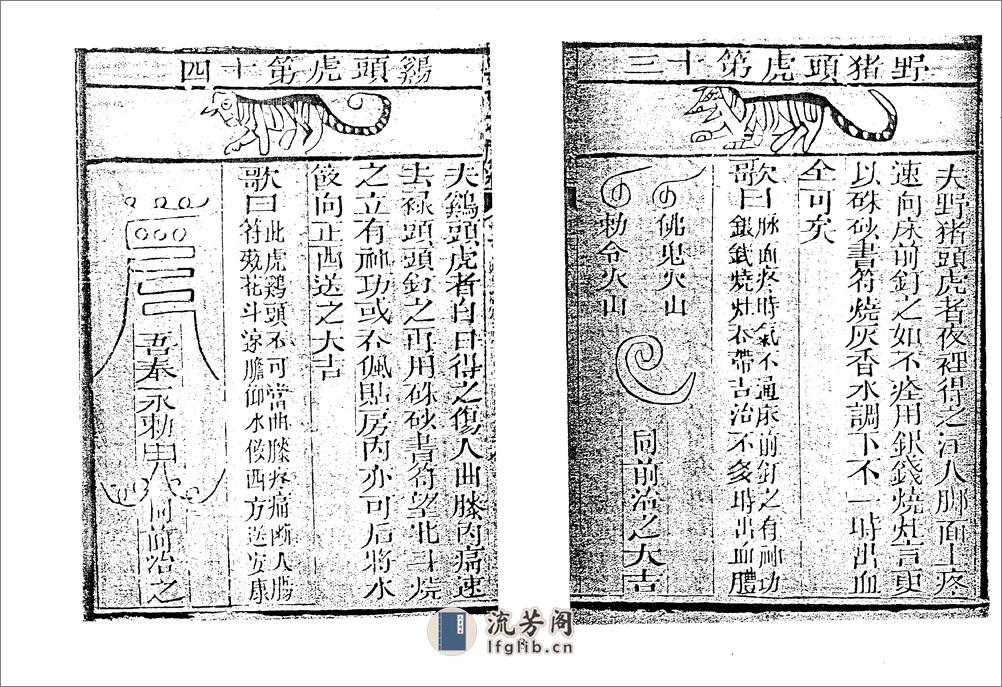 野猪頭虎第十三
夫野猪頭虎者夜裡得之注人脚面上疼
速向床前釘之如不痊用銀錢燒灶言更
以硃砂書符燒灰香水調下不一時出血
全可矣
歌曰 脉面疼時氣不通床前釘之有神功
銀錢燒灶衣帶吉治不多時出血體
鬼火山
勅令火山
同前治之大吉
鷄頭虎第十四
夫鷄頭虎者白日得之傷人曲膝肉痛速
去祿頭頭釘之再用硃砂書符望北斗燒
之立有神功或不佩貼房內亦可后將水
飯向正西送之大吉
歌曰 此虎鷄頭不可當曲膝疼痛斷人腸
符花斗涼膽仰水飯西方送安康
吾奉
勅
同前治之
流芳阁
lfglib.cn